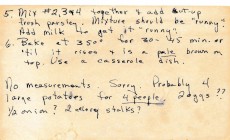 5. Mix #2,3&4 together & add cut up
fresh parsley. Mixture should be "runny".
Add milk to get it "runny".
6. Bake at 350° for 30-45 min. or
til it rises & is a pale brown on
top. Use a casserole dish.
No measurements. Sorry. Probably 4
large potatoes for 4 people. 2 eggs ??
½ onion? 2 celery stalks?